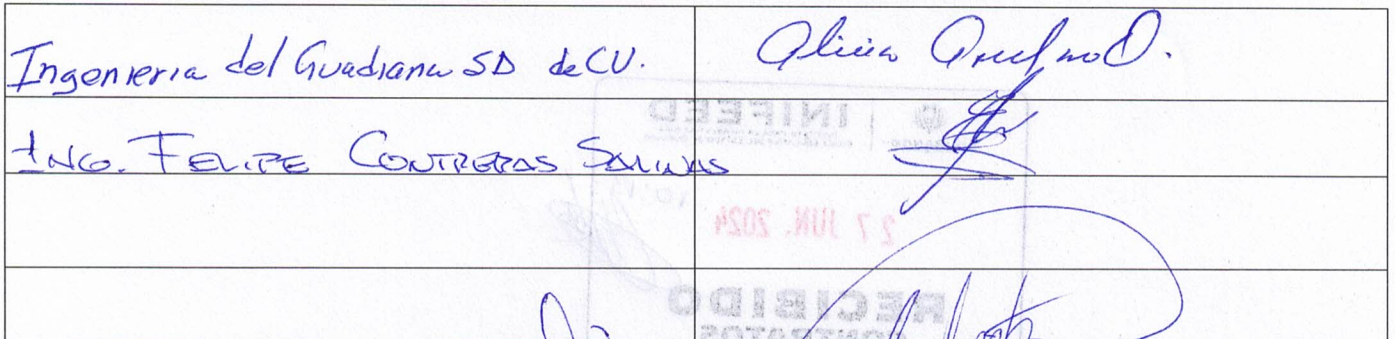 Ingenieria del Guadiana SD de CV.
Alicia
ING. FELIPE CONTRERAS SALINAS
INIFEED
27 JUN. 2024
RECIBIDO
CONTRATOS